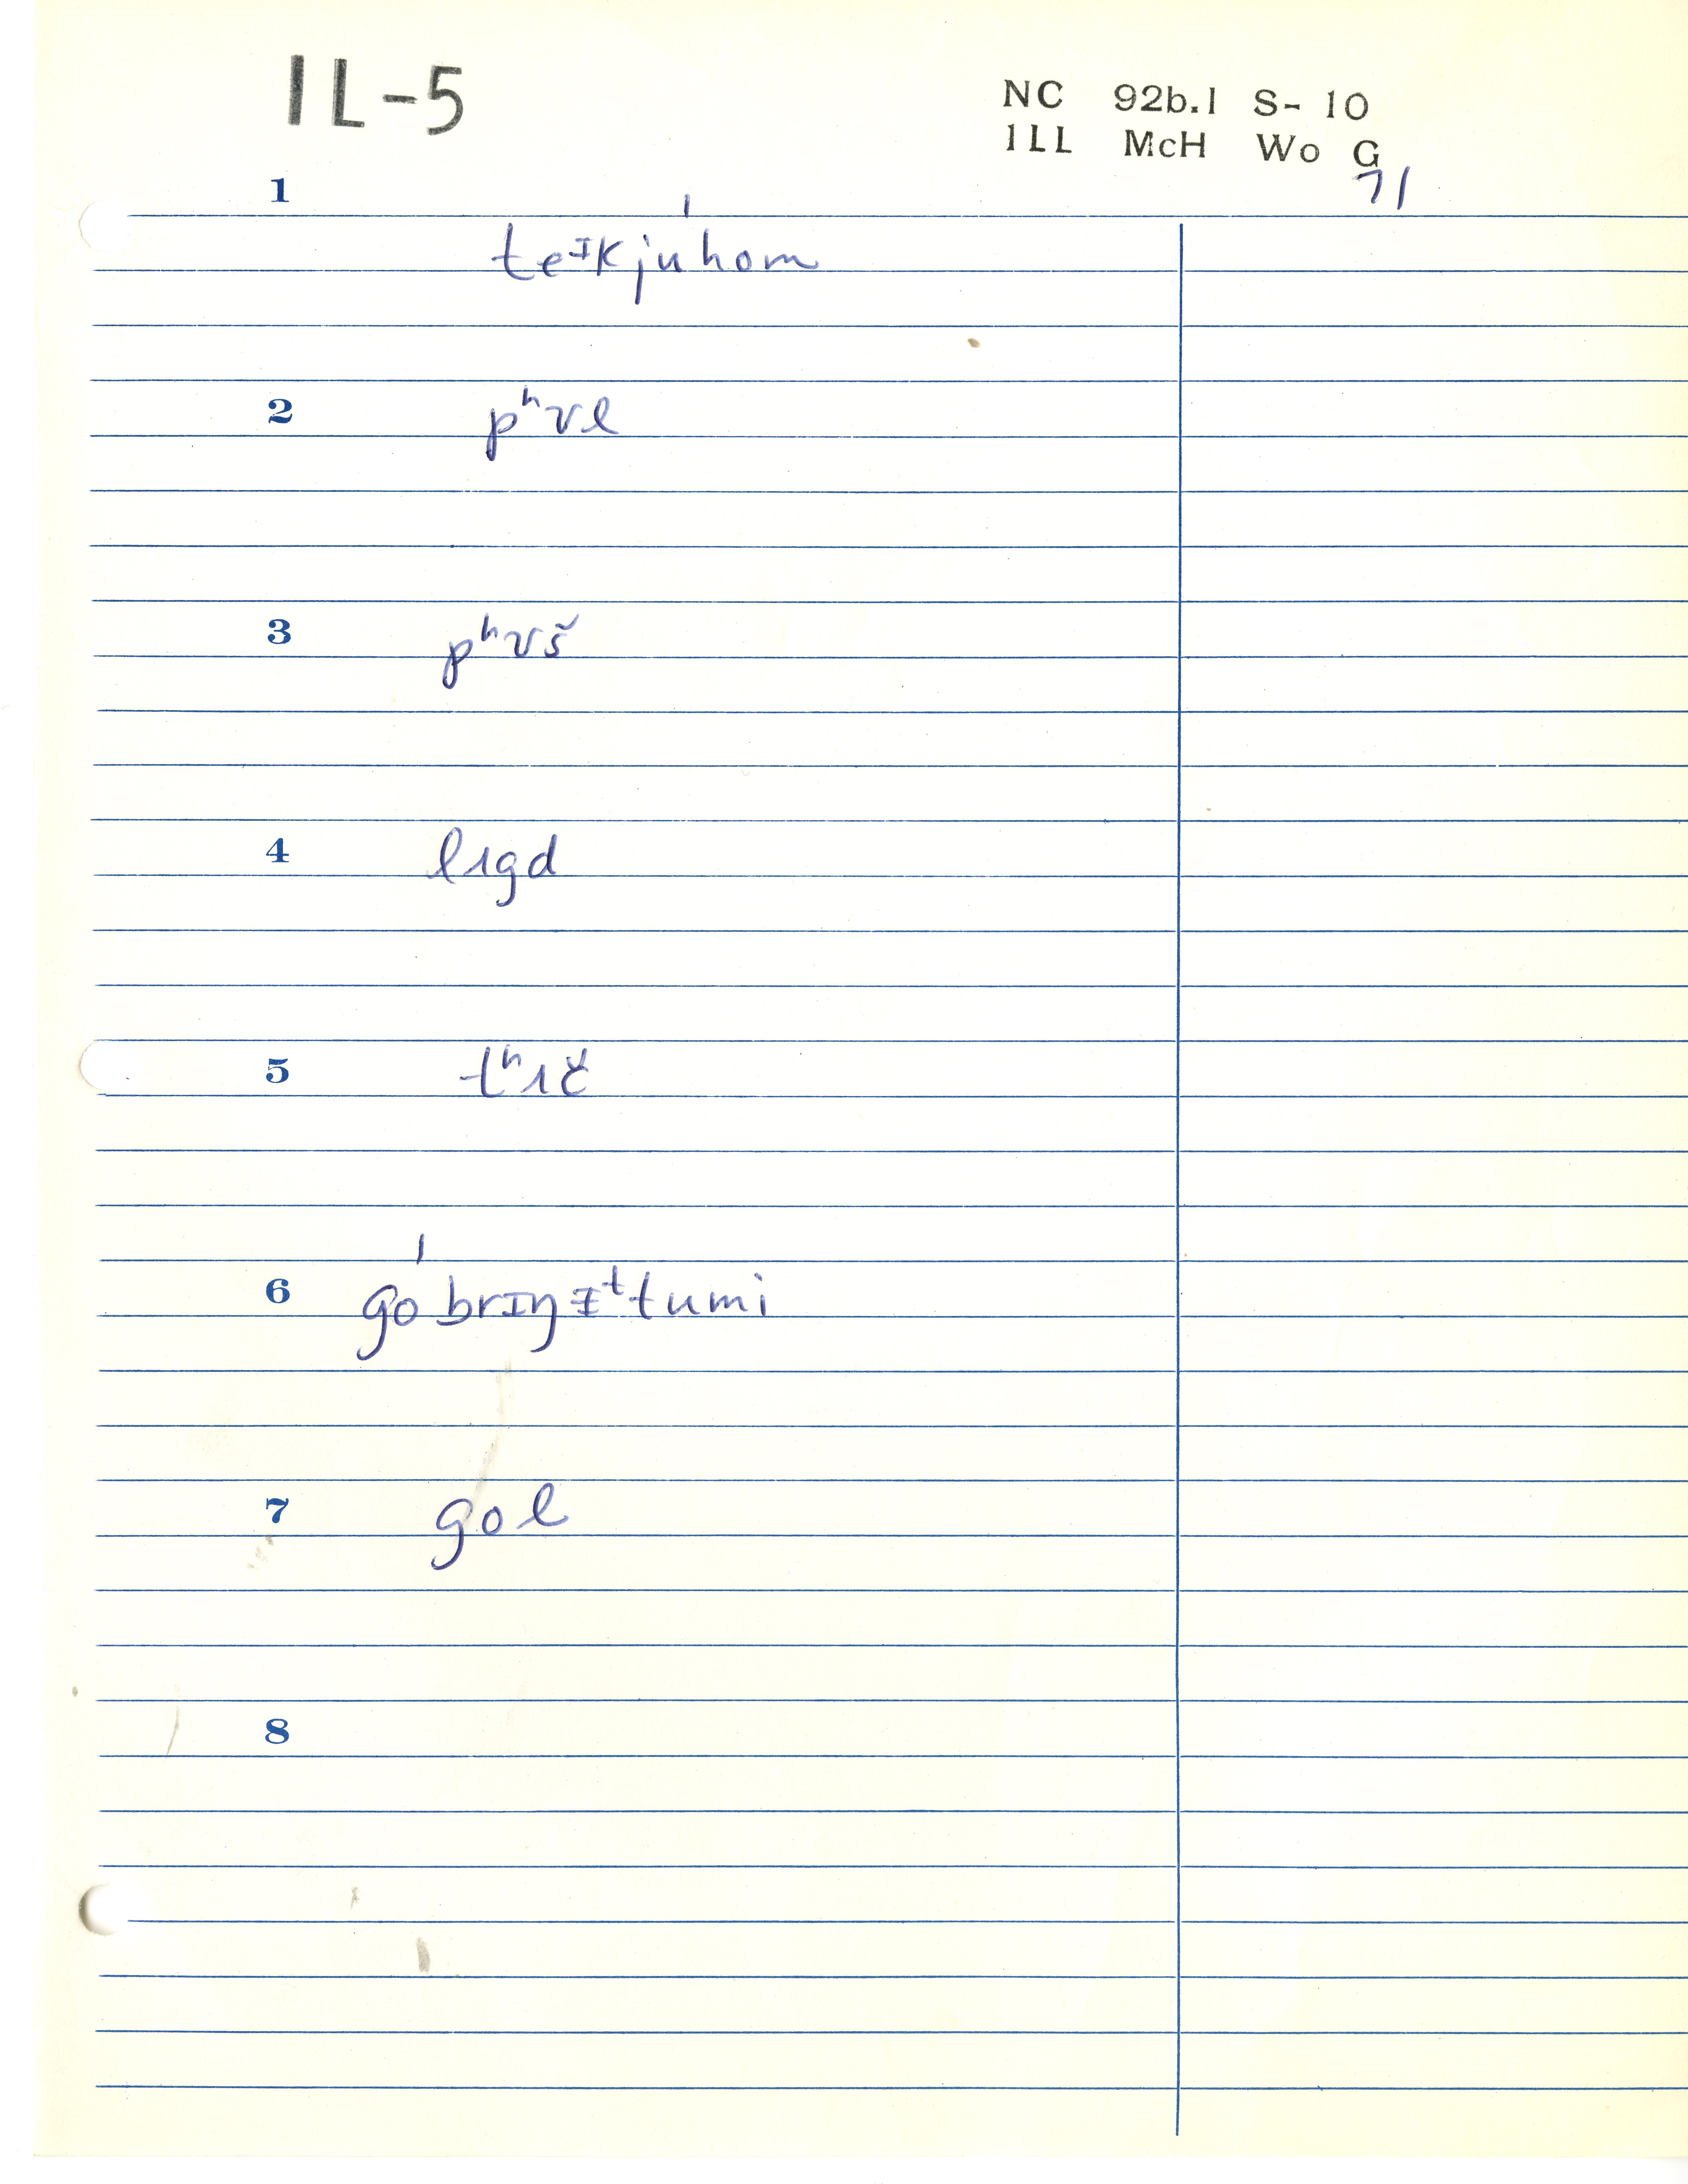 IL-5
NC 92b.1 S- 10
ILL McH Wo G
71
1
teᶦkjuhom
2 pʰʊl
3 pʰʊš
4 lɪgd
5 tʰɪč
6 go brɪŋ ɪᵗtumi
7 gol
8